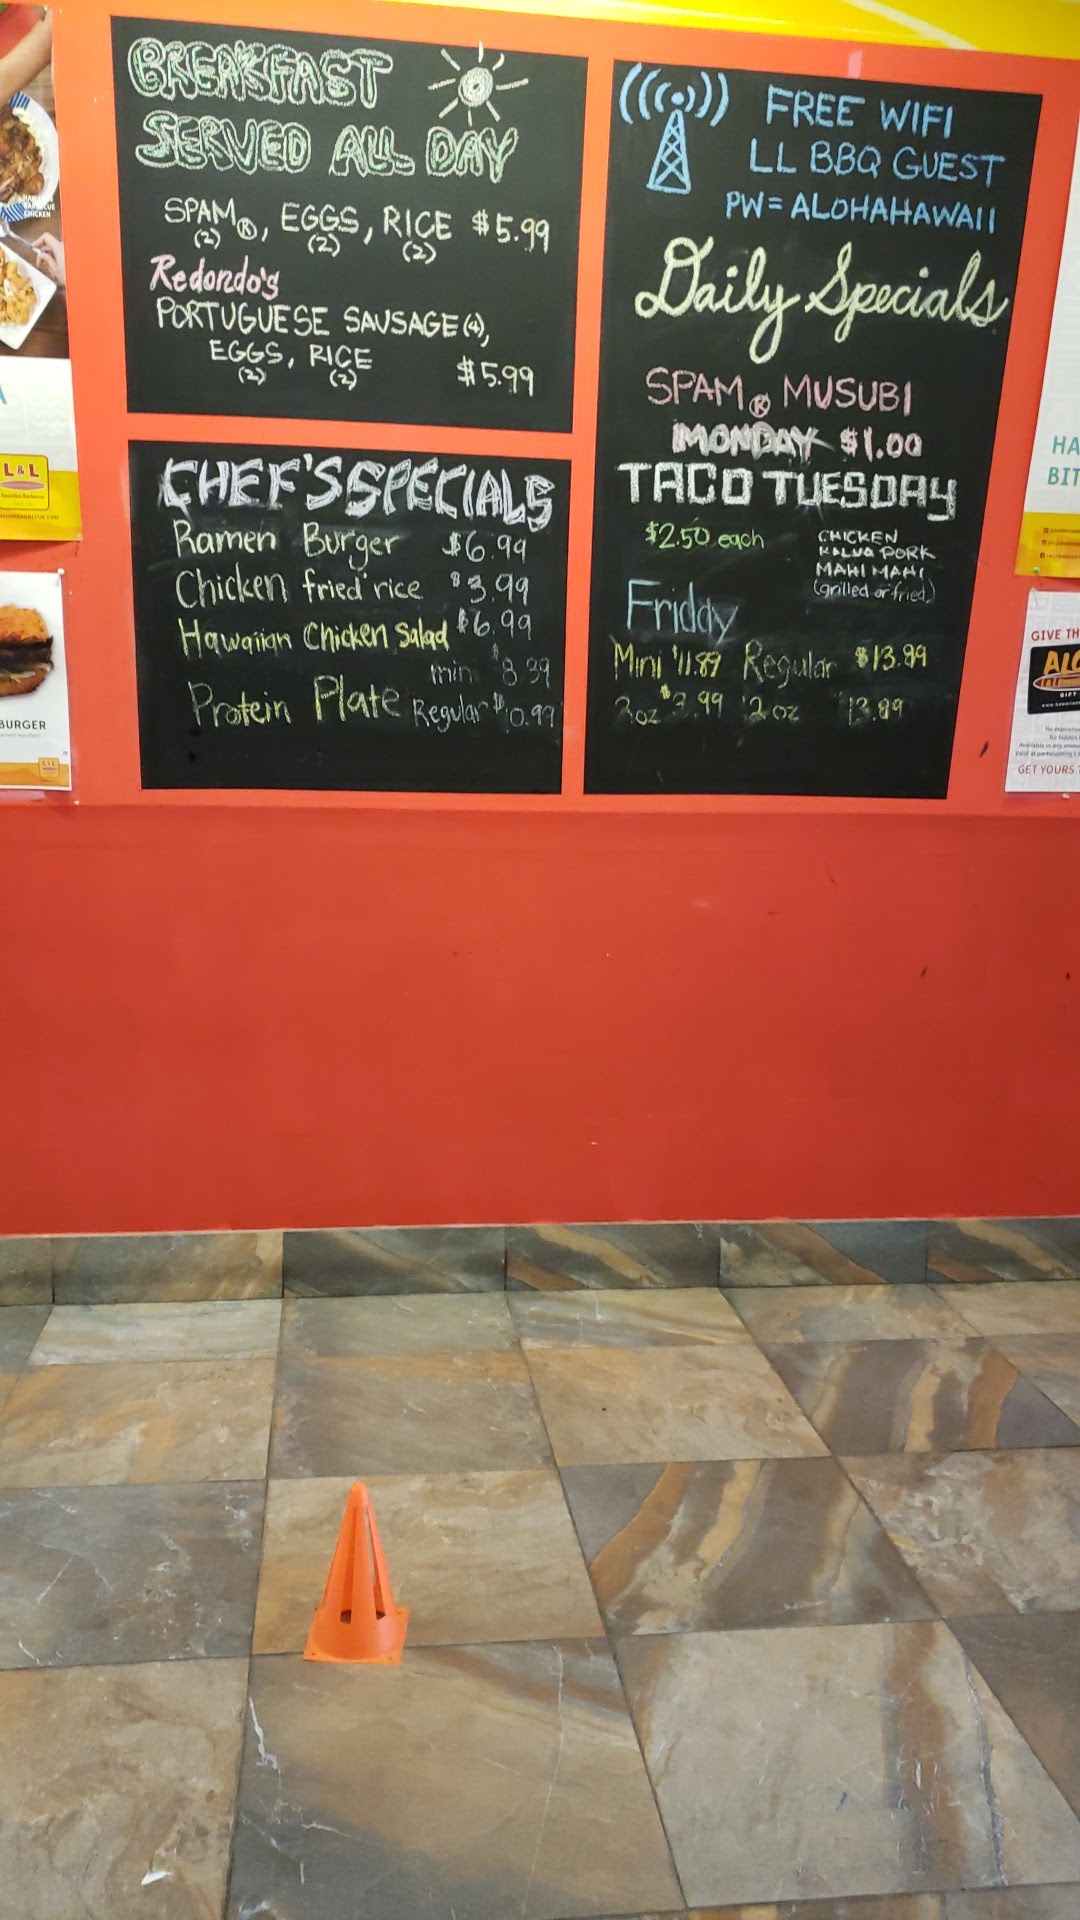 BREAKFAST
SERVED ALL DAY
SPAM®, EGGS, RICE $5.99
(2) (2) (2)
Redondo's
PORTUGUESE SAUSAGE (4),
EGGS, RICE
(2) (2)
$5.99
CHEF'S SPECIALS
Ramen Burger $6.99
Chicken fried rice $3.99
Hawaiian Chicken Salad $6.99
mini $8.39
Protein Plate Regular $10.99
FREE WIFI
LL BBQ GUEST
PW=ALOHAHAWAII
Daily Specials
SPAM® MUSUBI
MONDAY $1.00
TACO TUESDAY
$2.50 each
CHICKEN
KALUA PORK
MAHI MAHI
(grilled or fried)
Friday
Mini $11.89 Regular $13.99
oz $3.99 12 oz 13.89
CHICKEN
L&L
BURGER
L&L
HA
BIT
GIVE TH
ALO
GIFT
No expiration
No hidden
GET YOURS T